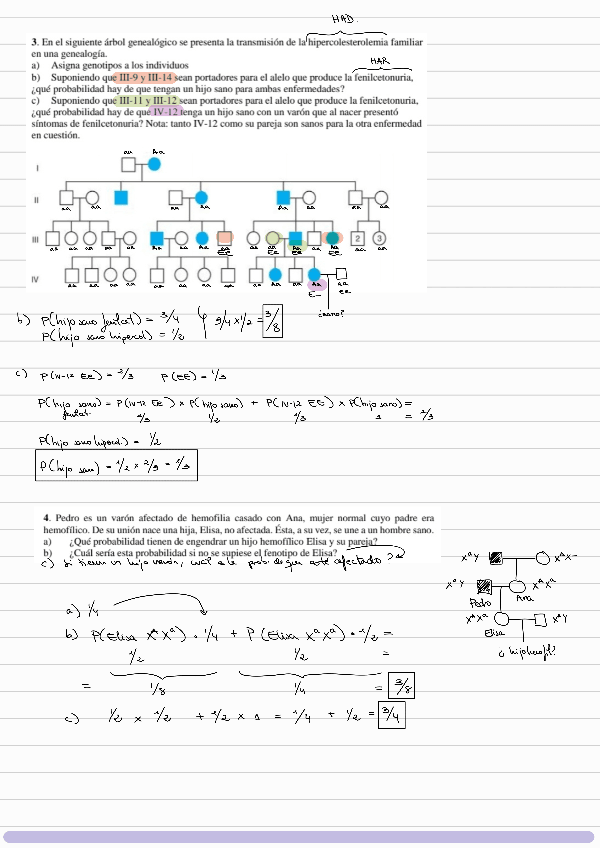 HAD.
3. En el siguiente árbol genealógico se presenta la transmisión de la hipercolesterolemia familiar
en una genealogía.
HAR
a) Asigna genotipos a los individuos
b) Suponiendo que III-9 y III-14 sean portadores para el alelo que produce la fenilcetonuria,
¿qué probabilidad hay de que tengan un hijo sano para ambas enfermedades?
c) Suponiendo que III-11 y III-12 sean portadores para el alelo que produce la fenilcetonuria,
¿qué probabilidad hay de que IV-12 tenga un hijo sano con un varón que al nacer presentó
síntomas de fenilcetonuria? Nota: tanto IV-12 como su pareja son sanos para la otra enfermedad
en cuestión.
I aa Aa
II aa aa aa Aa Aa aa aa aa
III aa aa aa aa aa Aa aa Aa aa aa aa Aa aa Aa 2 3
Ee Ee Ee Ee aa aa
IV aa aa aa aa aa aa aa aa aa Aa aa Aa aa
E_ ee
¿sano?
b) P(hijo sano fenilcet) = 3/4
P(hijo sano hipercol) = 1/2
3/4 x 1/2 = 3/8
c) P(IV-12 Ee) = 2/3 P(EE) = 1/3
P(hijo sano) = P(IV-12 Ee) x P(hijo sano) + P(IV-12 EE) x P(hijo sano) =
fenilcet. 2/3 1/2 1/3 1 = 2/3
P(hijo sano hipercol.) = 1/2
P(hijo sano) = 1/2 x 2/3 = 1/3
4. Pedro es un varón afectado de hemofilia casado con Ana, mujer normal cuyo padre era
hemofílico. De su unión nace una hija, Elisa, no afectada. Ésta, a su vez, se une a un hombre sano.
a) ¿Qué probabilidad tienen de engendrar un hijo hemofílico Elisa y su pareja?
b) ¿Cuál sería esta probabilidad si no se supiese el fenotipo de Elisa?
c) Si tienen un hijo varón, cuál es la prob. de que esté afectado?
XᵃY XᴬX-
XᵃY XᴬXᵃ
Pedro Ana
XᴬXᵃ XᴬY
Elisa
¿hijo hemof?
a) 1/4
b) P(Elisa XᴬXᵃ) · 1/4 + P(Elisa XᵃXᵃ) · 1/2 =
1/2 1/2 =
= 1/8 1/4 = 3/8
c) 1/2 x 1/2 + 1/2 x 1 = 1/4 + 1/2 = 3/4